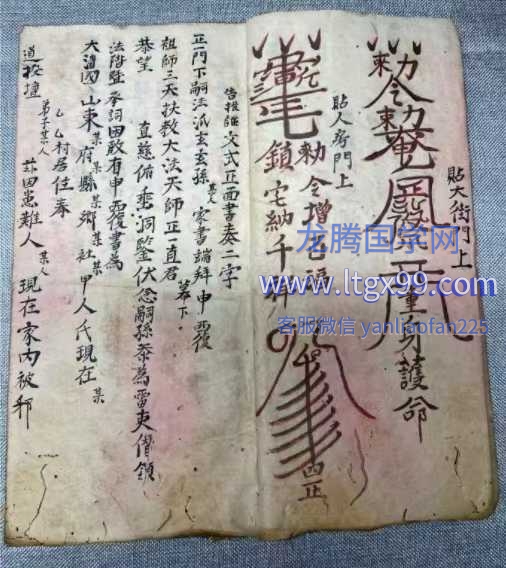 貼大街門上
敕令
護命
貼人房門上
敕令增百福
鎖宅納千祥
四正
告投師文式正面書奏二字
正一門下嗣法派玄玄孫某人家書端拜申覆
祖師三天扶教大法天師正一真君 幕下
恭望 真慈俯垂洞鑒伏念嗣孫忝為雷吏僭領
法階監 詞因敢有申覆書為
大清國山東某府某縣某鄉某社某甲人氏現在某
乙乙村居住奉
道投壇弟子某人 茲因患難人某人現在家內被邪
龙腾国学网
www.ltgx99.com
客服微信 yanliaofan225